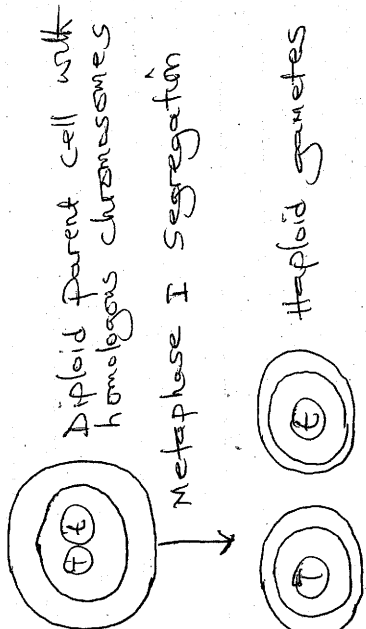 Diploid Parent cell with
homologous chromosomes
T t
Metaphase I Segregation
T
t
Haploid gametes